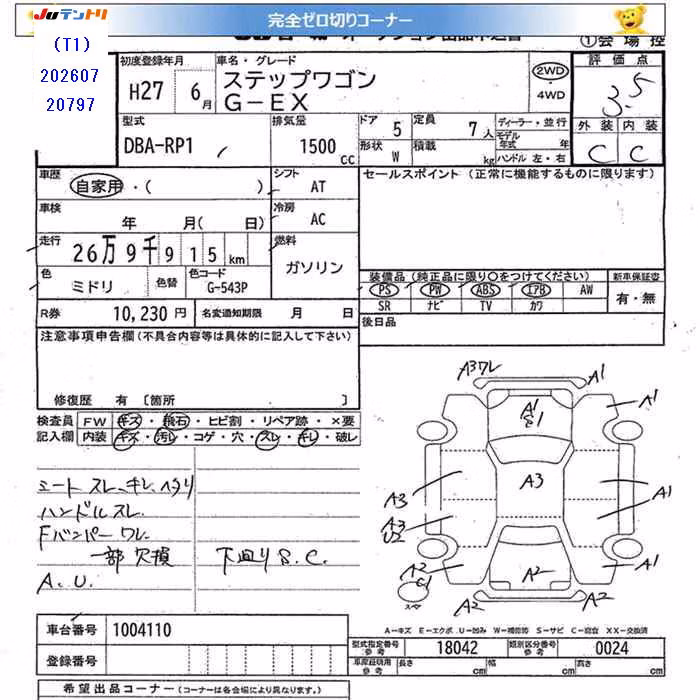 JUテントリ
完全ゼロ切りコーナー
(T1)
202607
20797
①会場控
初度登録年月
H27 6月
車名・グレード
ステップワゴン
G-EX
2WD
・4WD
評価点
3.5
型式
DBA-RP1
排気量
1500cc
ドア 5
形状 W
定員 7人
積載 kg
ディーラー・並行
モデル年式 年
ハンドル 左・右
外装 内装
C C
車歴
自家用・( )
シフト
AT
セールスポイント (正常に機能するものに限ります)
車検
年 月( 日)
冷房
AC
走行
26万9千915km
燃料
ガソリン
色
ミドリ
色替
色コード
G-543P
装備品(純正品に限り○をつけてください)
PS PW ABS エアB AW
SR ナビ TV カワ
新車保証書
有・無
R券 10,230円
名変通知期限 月 日
後日品
注意事項申告欄(不具合内容等は具体的に記入して下さい)
修復歴 有〔箇所 〕
検査員記入欄
FW キズ・飛石・ヒビ割・リペア跡・×要
内装 キズ・汚レ・コゲ・穴・スレ・キレ・破レ
シート スレ、キレ、ヘタリ
ハンドルスレ
Fバンパーワレ
一部欠損 下廻りS.C.
A.U.
A3ワレ
A1
A1
A1
S1
A3
A3
A1
A3
U2
A2
C1
A1
A2
A2
A2
スペヤ
A-キズ E-エクボ U-凹み W-補修跡 S-サビ C-腐食 XX-交換済
車台番号 1004110
登録番号
型式指定番号 参考 18042
類別区分番号 参考 0024
車庫証明用 参考 長さ cm 幅 cm 高さ cm
希望出品コーナー(コーナーは各会場により異なります。)